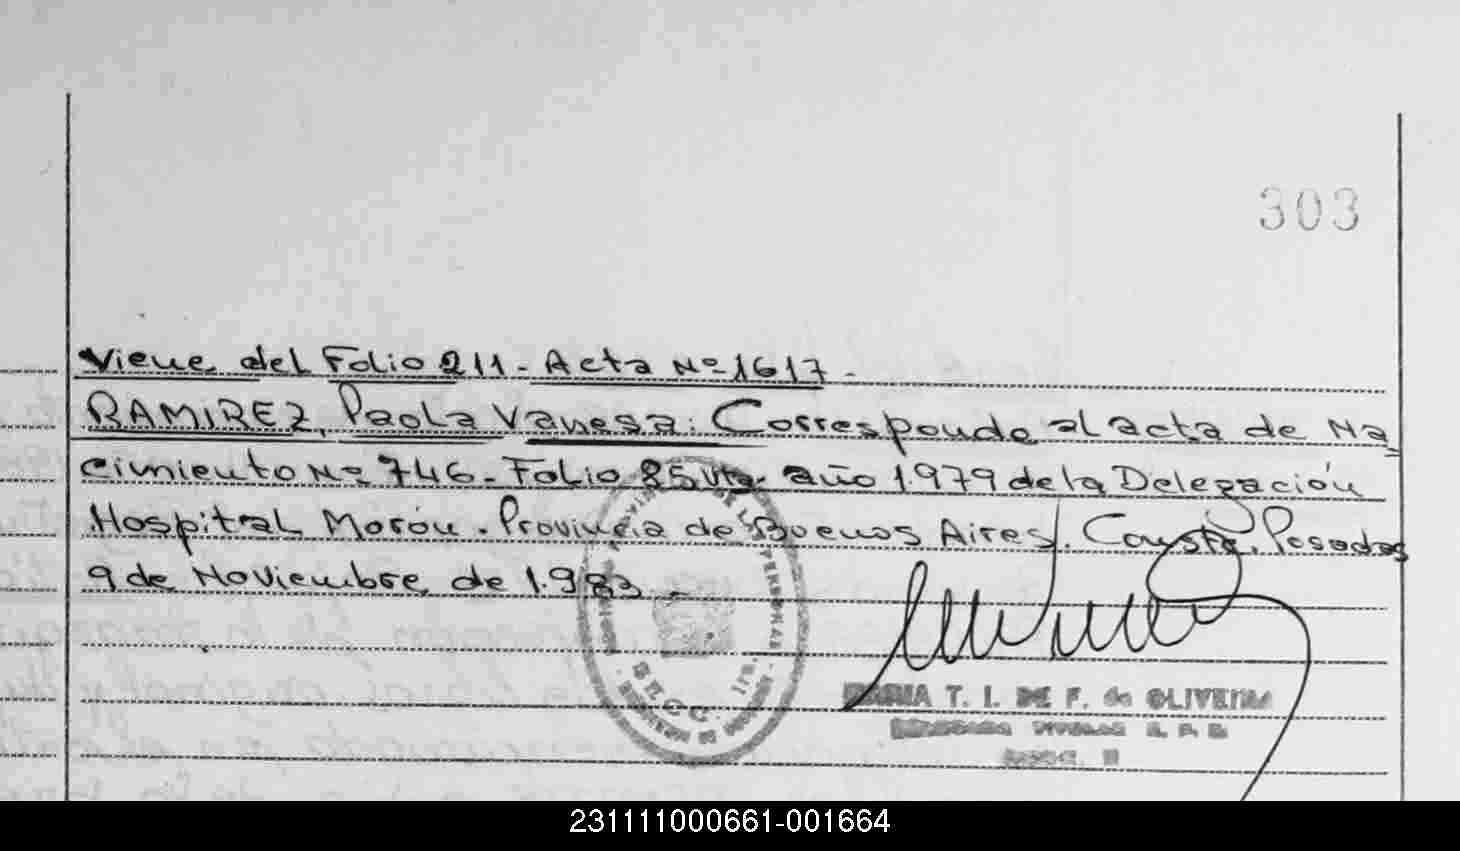 303
Viene del Folio 211.- Acta Nº 1617.-
RAMIREZ, Paola Vanesa: Corresponde al acta de Na=
cimiento Nº 746.- Folio 85 vta. año 1.979 de la Delegación
Hospital Morón. Provincia de Buenos Aires. Conste. Posadas
9 de Noviembre de 1.983.-
DE LAS PERSONAS
SECC. 1ra.
MARIA T. I. DE F. de OLIVEIRA
231111000661-001664